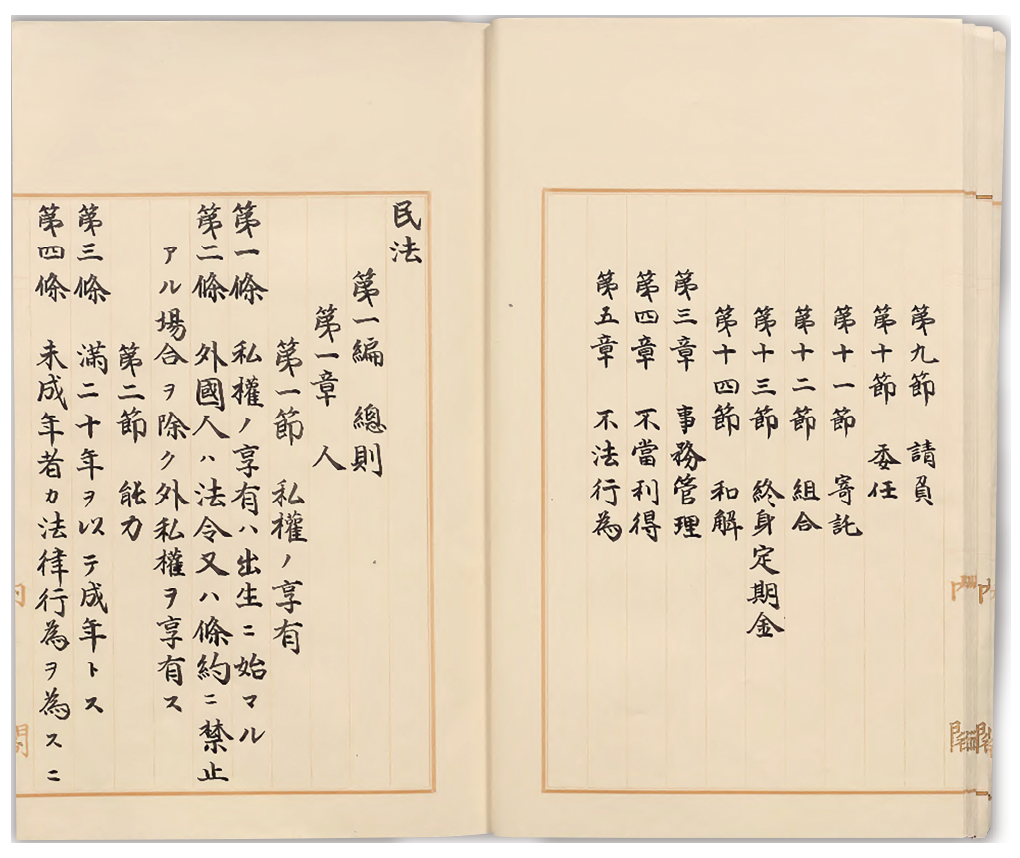 第九節 請負
第十節 委任
第十一節 寄託
第十二節 組合
第十三節 終身定期金
第十四節 和解
第三章 事務管理
第四章 不當利得
第五章 不法行為
民法
第一編 總則
第一章 人
第一節 私權ノ享有
第一條 私權ノ享有ハ出生ニ始マル
第二條 外國人ハ法令又ハ條約ニ禁止
アル場合ヲ除ク外私權ヲ享有ス
第二節 能力
第三條 滿二十年ヲ以テ成年トス
第四條 未成年者カ法律行為ヲ為スニ